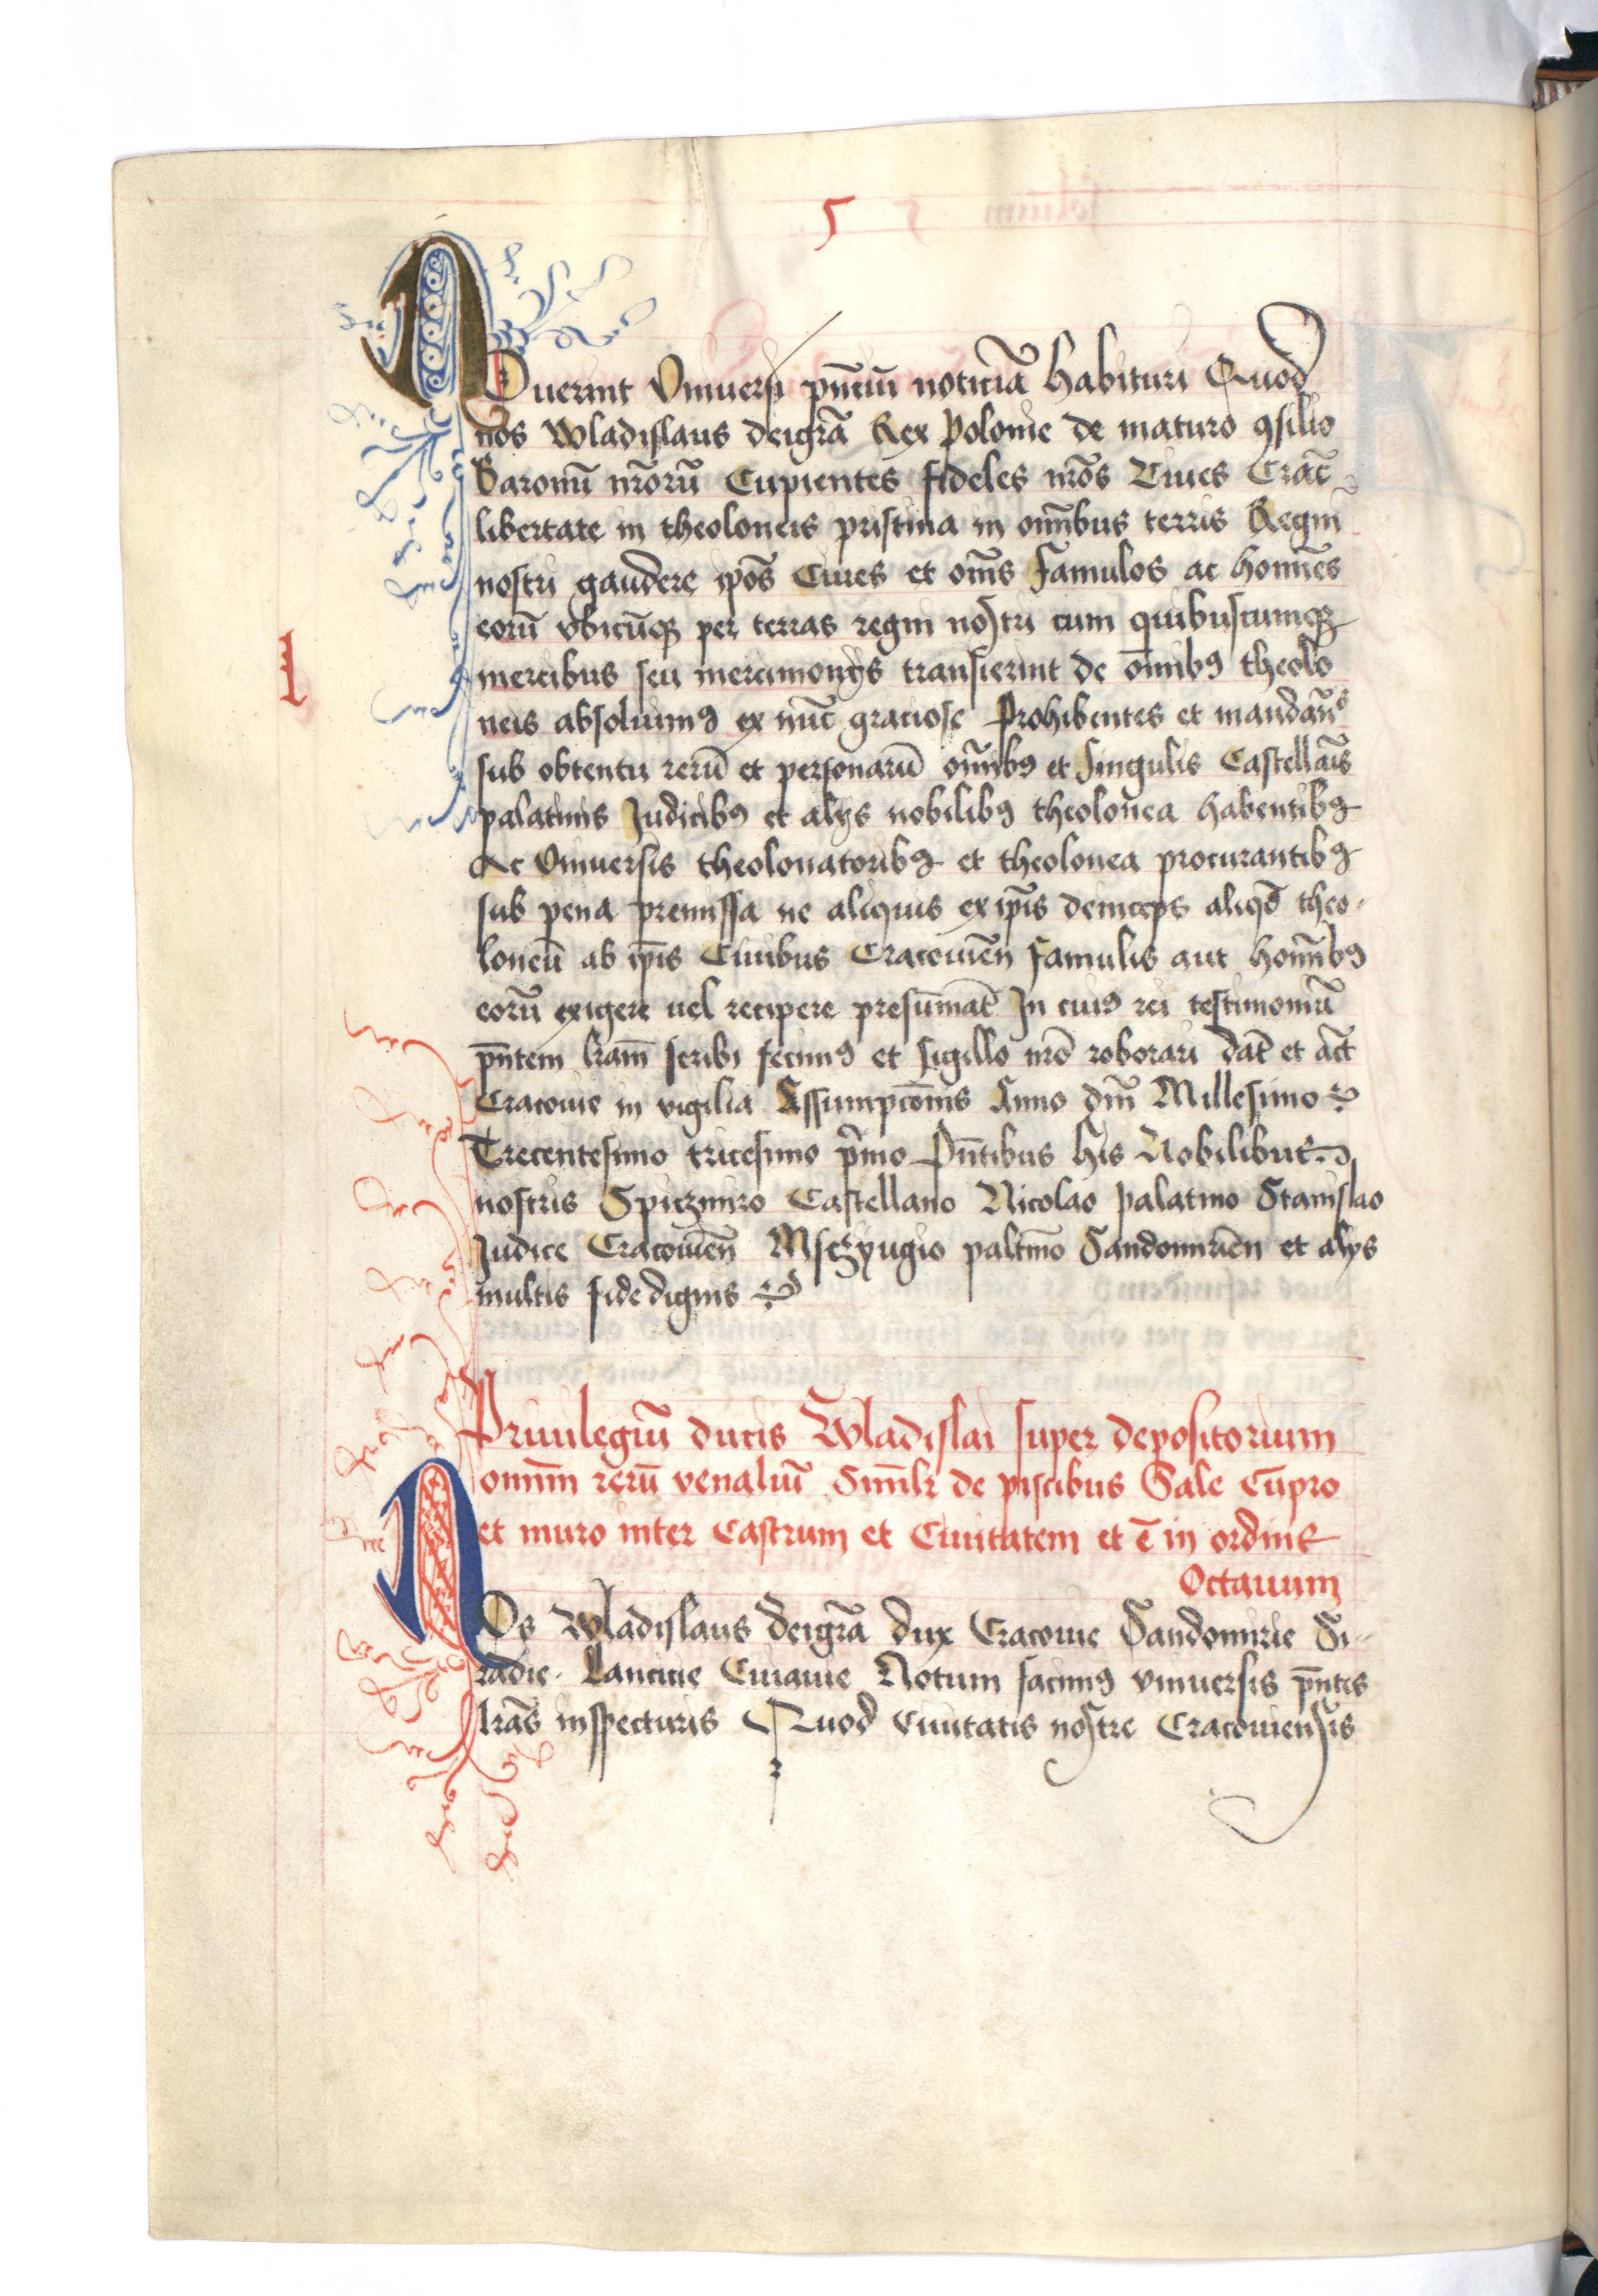 5
NOuerint Vniuersi pn̄ciū noticiā habituri Quod
nos Wladislaus deigrā Rex Polonie de maturo ꝯsilio
Baronū nrōrū Cupientes fideles nrōs Ciues Crac̄
libertate in theoloneis pristina in om̄ibus terris Regni
nostri gaudere ip̄os Ciues et om̄s famulos ac homīes
eorū vbicūqꝫ per terras regni nostri cum quibuscumqꝫ
mercibus seu mercimonijs transierint de om̄ibꝯ theolo
neis absoluimꝯ ex nūc graciose Prohibentes et mandān̄s
sub obtentu rerū et personarū om̄ibꝯ et singulis Castellāis
palatinis Judicibꝯ et alijs nobilibꝯ theolonea habentibꝯ
Ac Vniuersis theolonatoribꝯ et theolonea procurantibꝯ
sub pena premissa ne aliquis ex ip̄is deinceps aliqd̄ theo-
loneū ab ip̄is Ciuibus Cracouien̄ famulis aut homīibꝯ
eorū exigere uel recipere presumāt In cuiꝯ rei testimoniū
pn̄tem lr̄am scribi fecimꝯ et sigillo nrō roborari dat̄ et act̄
Cracouie in vigilia Assumpcōnis Anno dn̄i Millesimo
Trecentesimo tricesimo pͥmo Pn̄tibus hijs Nobilibus
nostris Spiczmiro Castellano Nicolao palatino Stanislao
Judice Cracouien̄ Msczyugio palatīo Sandomirien̄ et alijs
multis fidedignis
I
Priuilegiū ducis Wladislai super depositorium
om̄im rerū venaliū Simīlr de piscibus Sale Cupro
et muro inter Castrum et Ciuitatem et ē in ordine
Octauum
NOs Wladislaus deigrā dux Cracouie Sandomirie Si-
radie Lancicie Cuiauie Notum facimꝯ vniuersis pn̄tes
lr̄as inspecturis Quod Ciuitatis nostre Cracouiensis